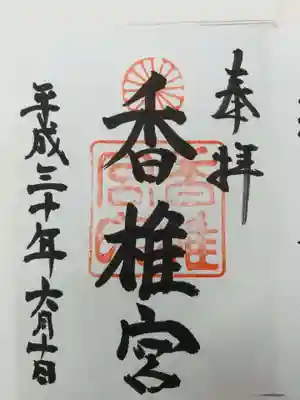 奉拝
香椎宮
香椎宮印
平成三十年六月十日